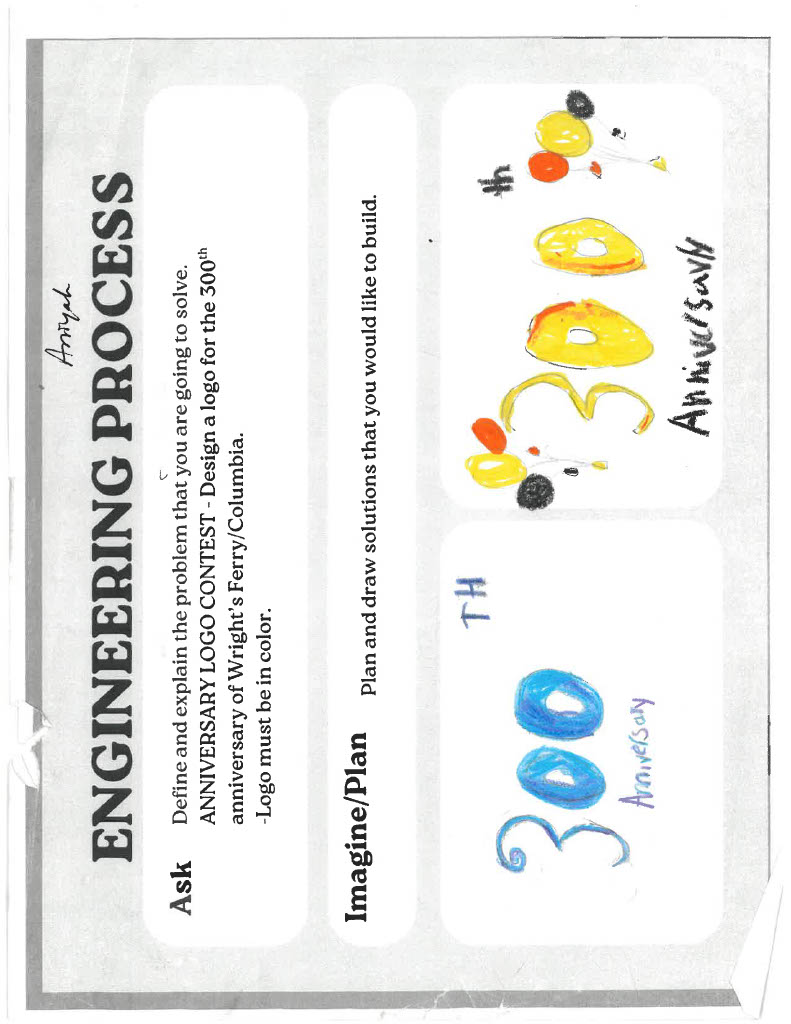 Aniyah
ENGINEERING PROCESS
Ask
Define and explain the problem that you are going to solve.
ANNIVERSARY LOGO CONTEST - Design a logo for the 300th
anniversary of Wright's Ferry/Columbia.
-Logo must be in color.
Imagine/Plan
Plan and draw solutions that you would like to build.
300 TH
Anniversary
300 th
Anniversary